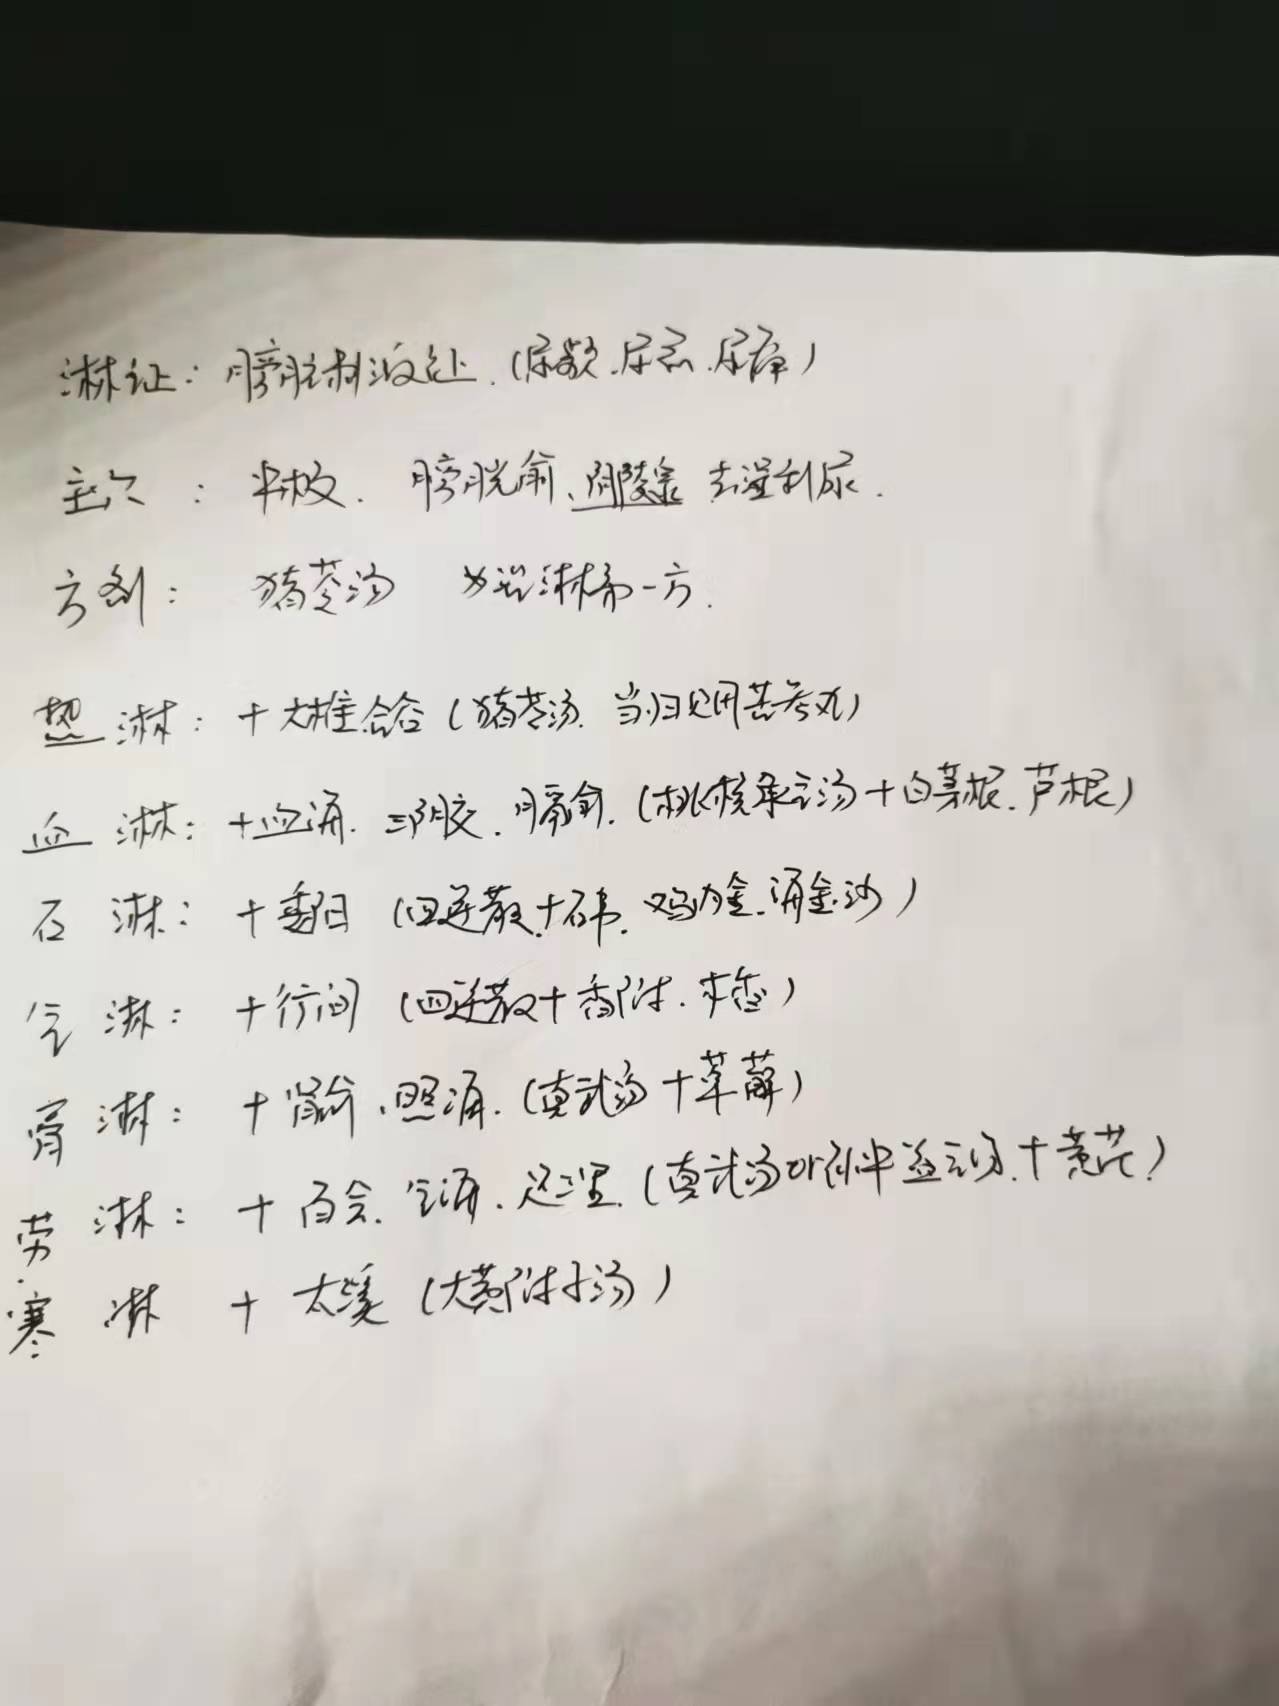 淋证：膀胱刺激征.（尿频.尿急.尿痛）
主穴：中极.膀胱俞、阴陵泉 去湿利尿.
方剂：猪苓汤 为治淋第一方.
热淋：+大椎.合谷（猪苓汤.当归贝母苦参丸）
血淋：+血海.三阴交.膈俞.（桃核承气汤+白茅根.芦根）
石淋：+委阳（四逆散+石韦.鸡内金.海金沙）
气淋：+行间（四逆散+香附.木香）
膏淋：+肾俞.照海.（真武汤+萆薢）
劳淋：+百会.气海.足三里.（真武汤 补中益气汤.+黄芪）
寒淋 +太溪（大黄附子汤）